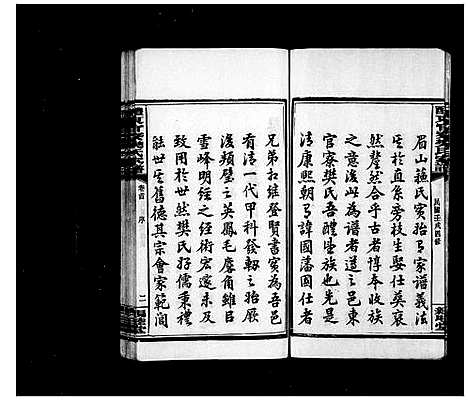 眉山蘇氏實治弓家譜義法
至於直系旁枝生娶仕葬裒
然釐然合乎古者惇本收族
之意後此為譜者道之邑東
官寮樊氏吾醴望族也先是
清康熙朝弓諱國藩國仕者
兄弟相繼登賢書實為吾邑
有清一代甲科發軔之始厥
後頻璧之英鳳毛麐角雖呂
靈峰明經之經術宏邃未及
致用於世然樊氏孖儒秉禮
能世至舊德其宗會家範閎
民國壬戌四修
卷首
序
二